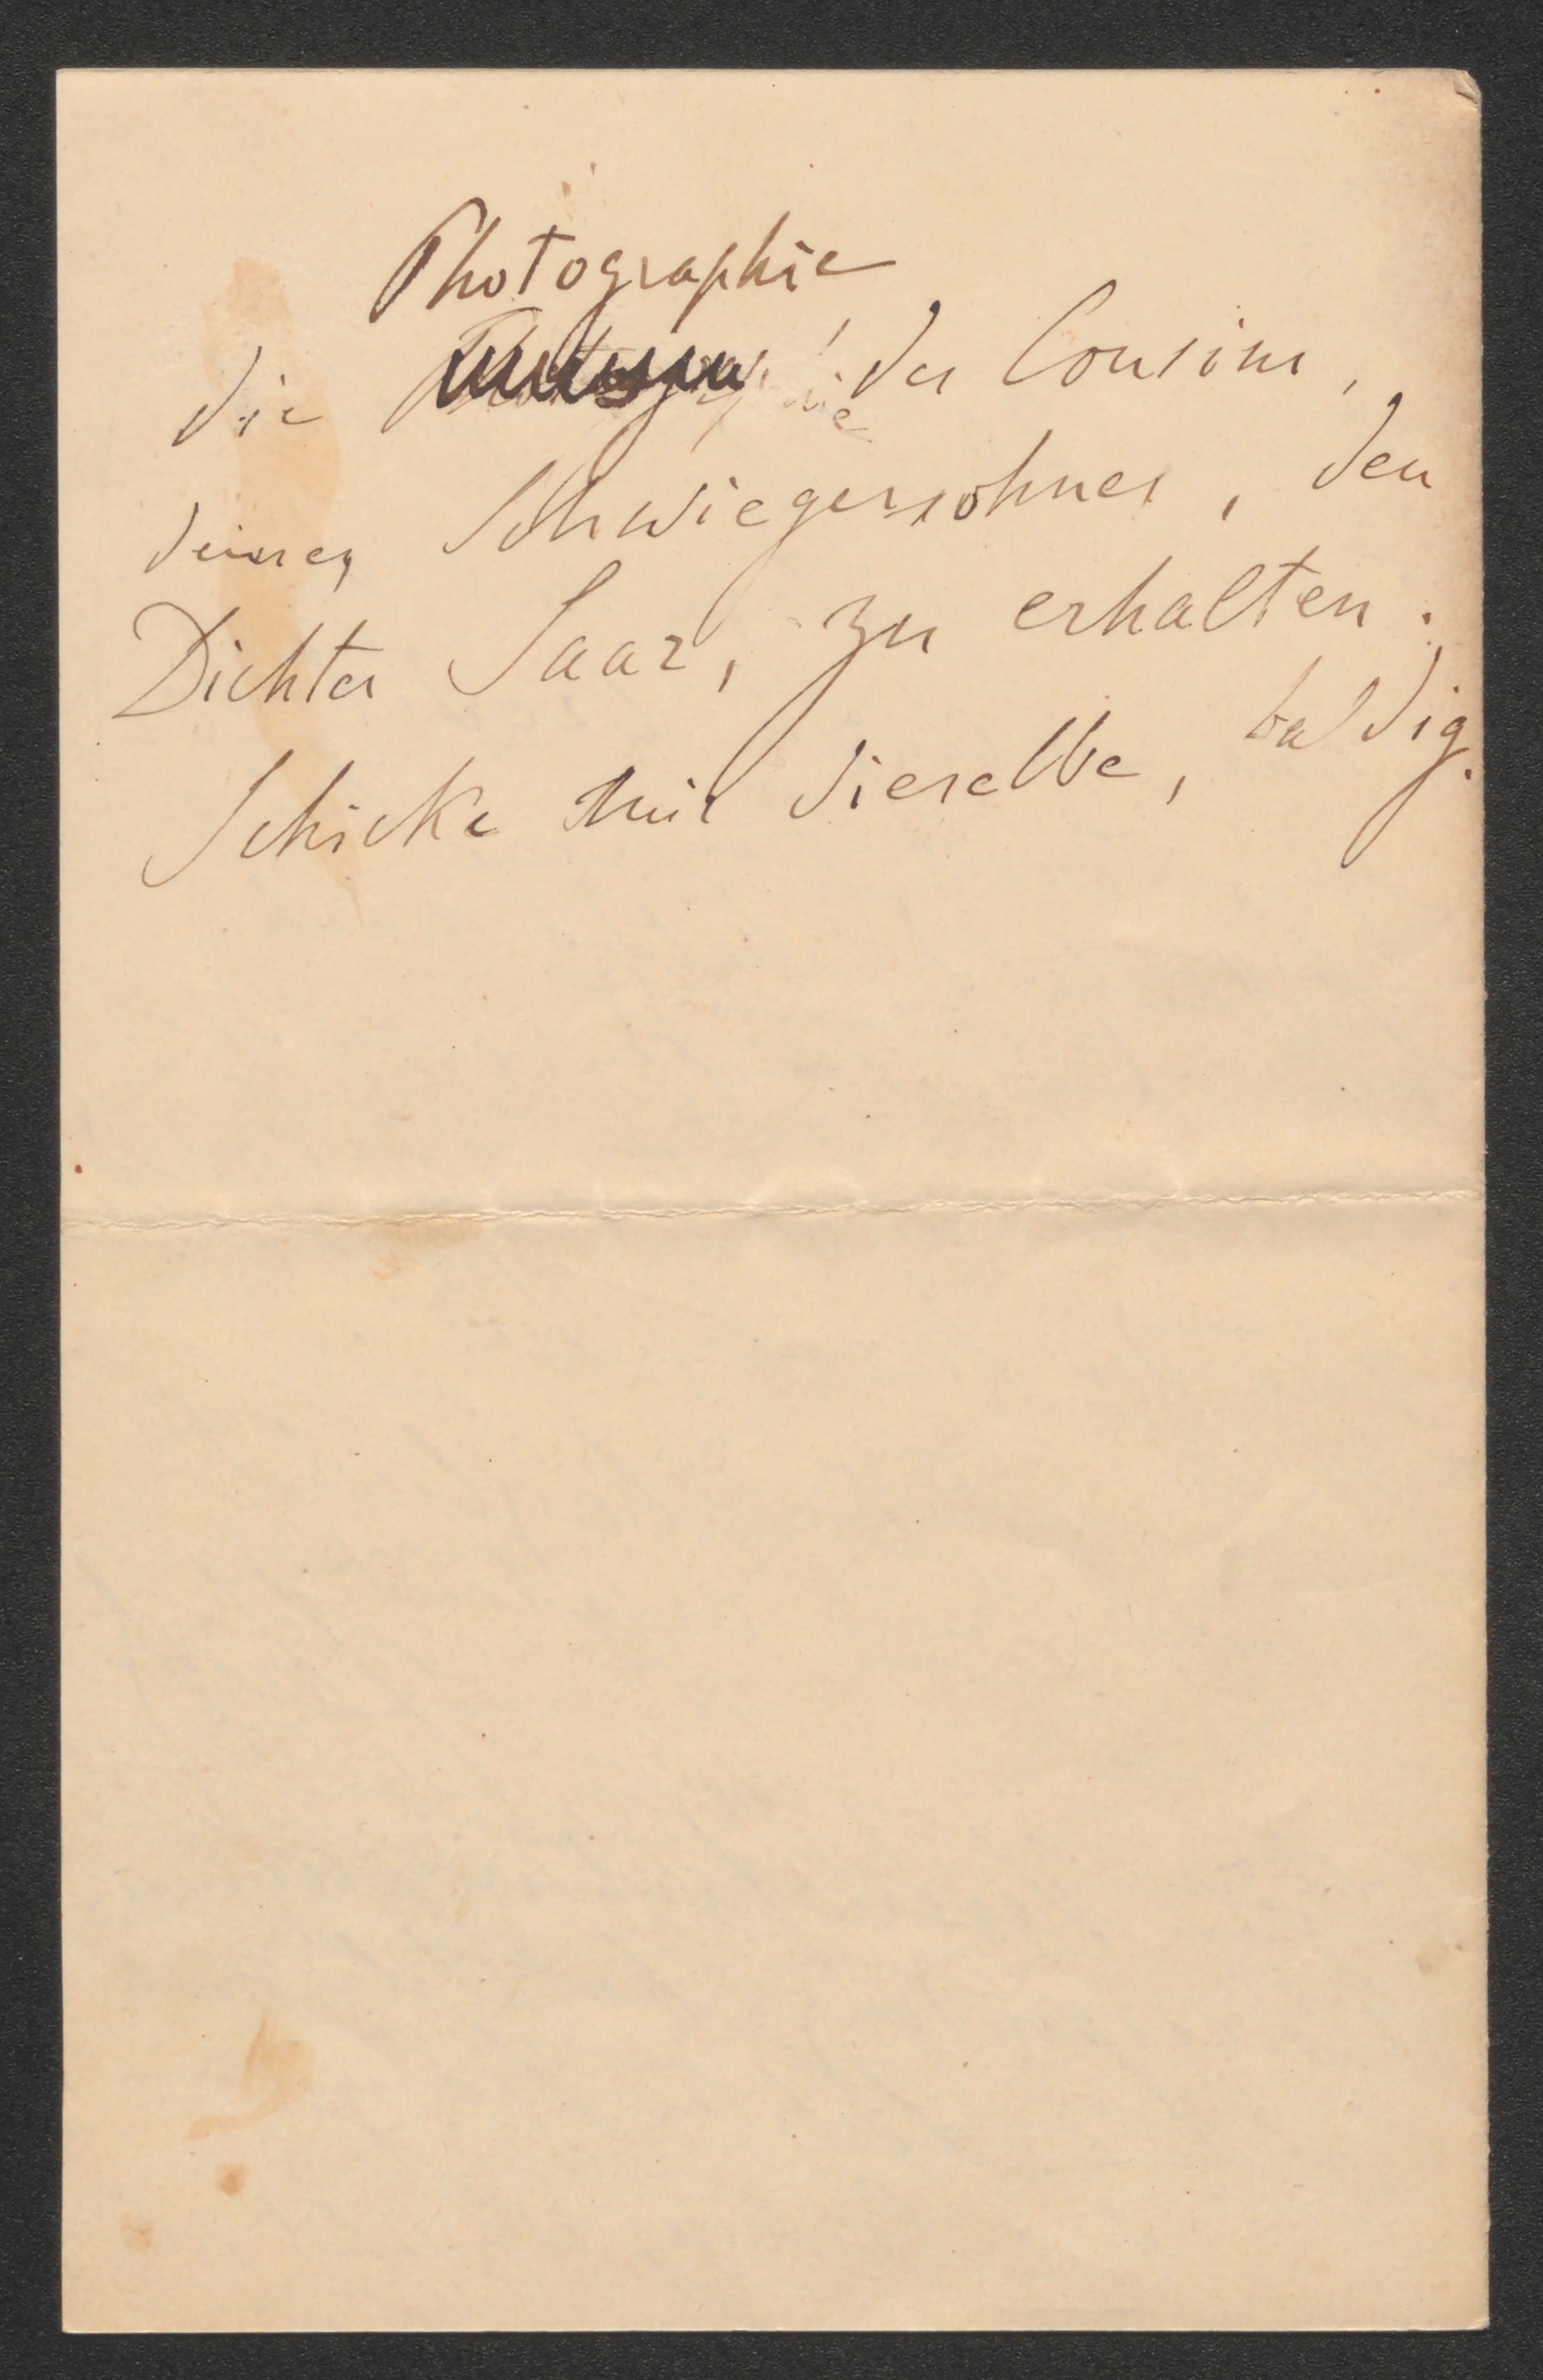 Photographie
die der Cousine,
deines Schwiegersohnes, den
Dichter Saar, zu erhalten.
Schicke mir dieselbe, baldig.